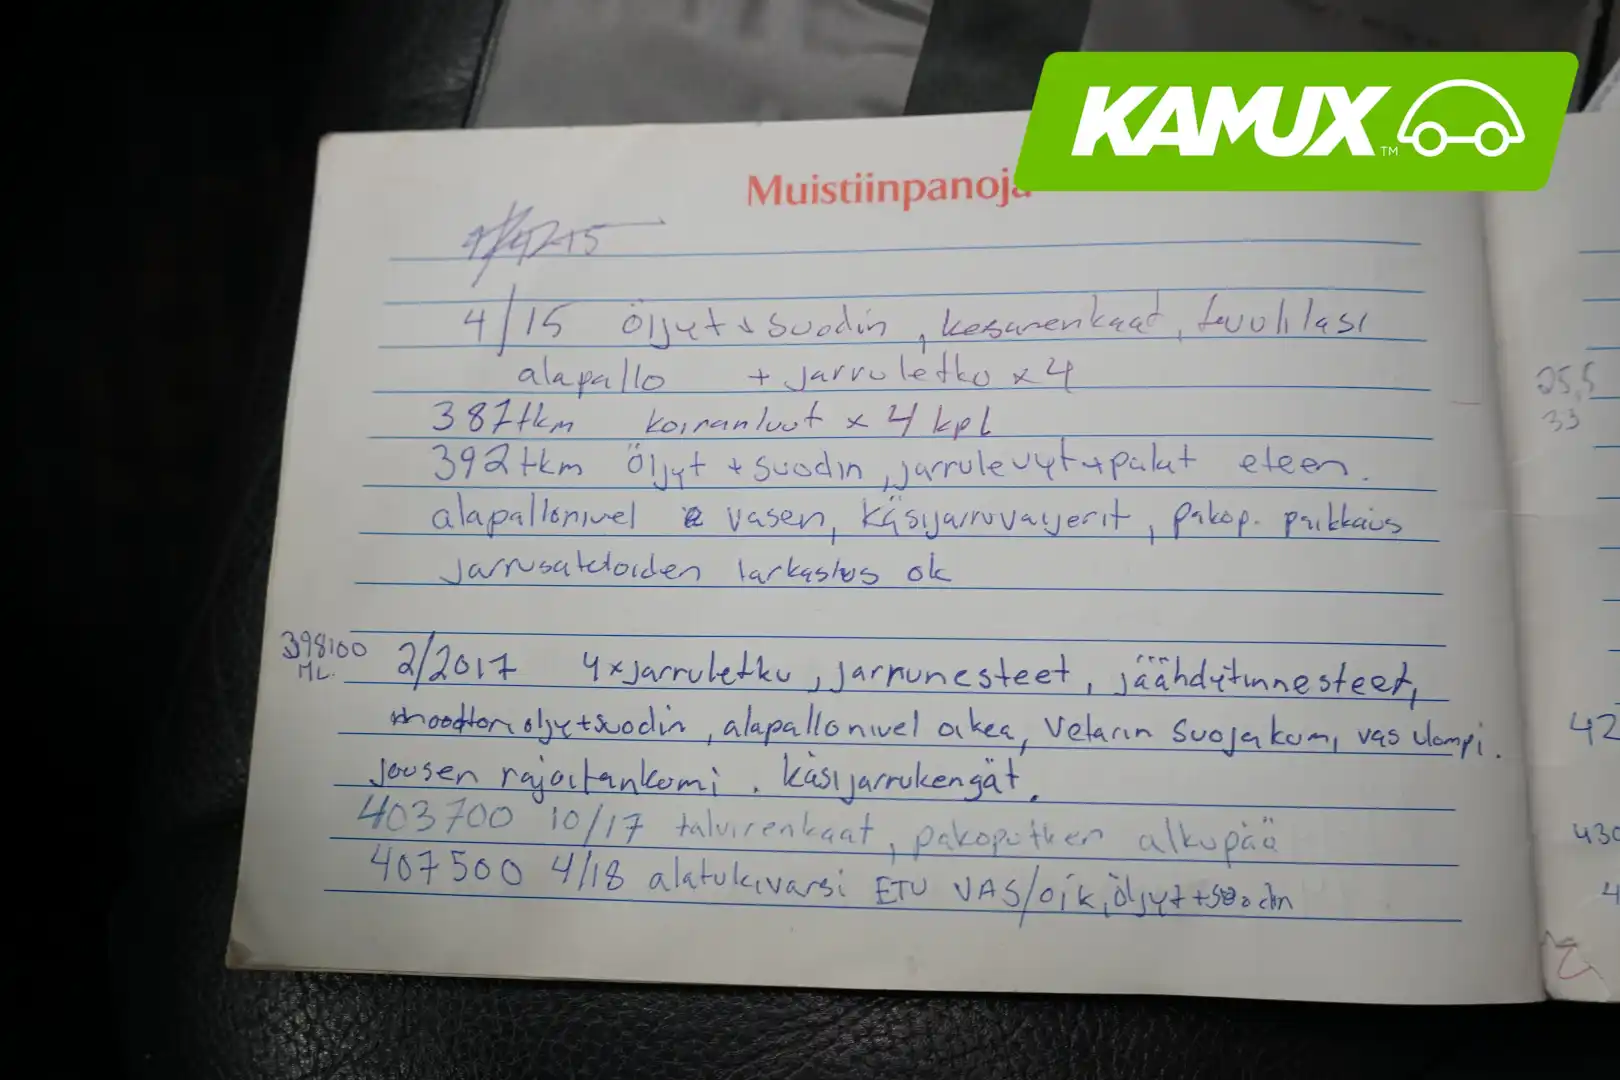 KAMUX™
Muistiinpanoja
4/15 Öljyt + suodin, kesärenkaat, tuulilasi
alapallo + jarruletku x 4
387tkm koiranluut x 4 kpl
392tkm Öljyt + suodin, jarrulevyt + palat eteen.
alapallonivel vasen, käsijarruvaijerit, pakop. paikkaus
jarrusatuloiden tarkastus ok
398100
ML. 2/2017 4xjarruletku, jarrunesteet, jäähdytinnesteet,
moottoriöljyt+suodin, alapallonivel oikea, Vetarin suojakumi vas ulompi.
Jousen rajoitankumi. Käsijarrukengät.
403700 10/17 talvirenkaat, pakoputken alkupää
407500 4/18 alatukivarsi ETU VAS/oik, öljyt+suodin
25,5
33
42
430
4